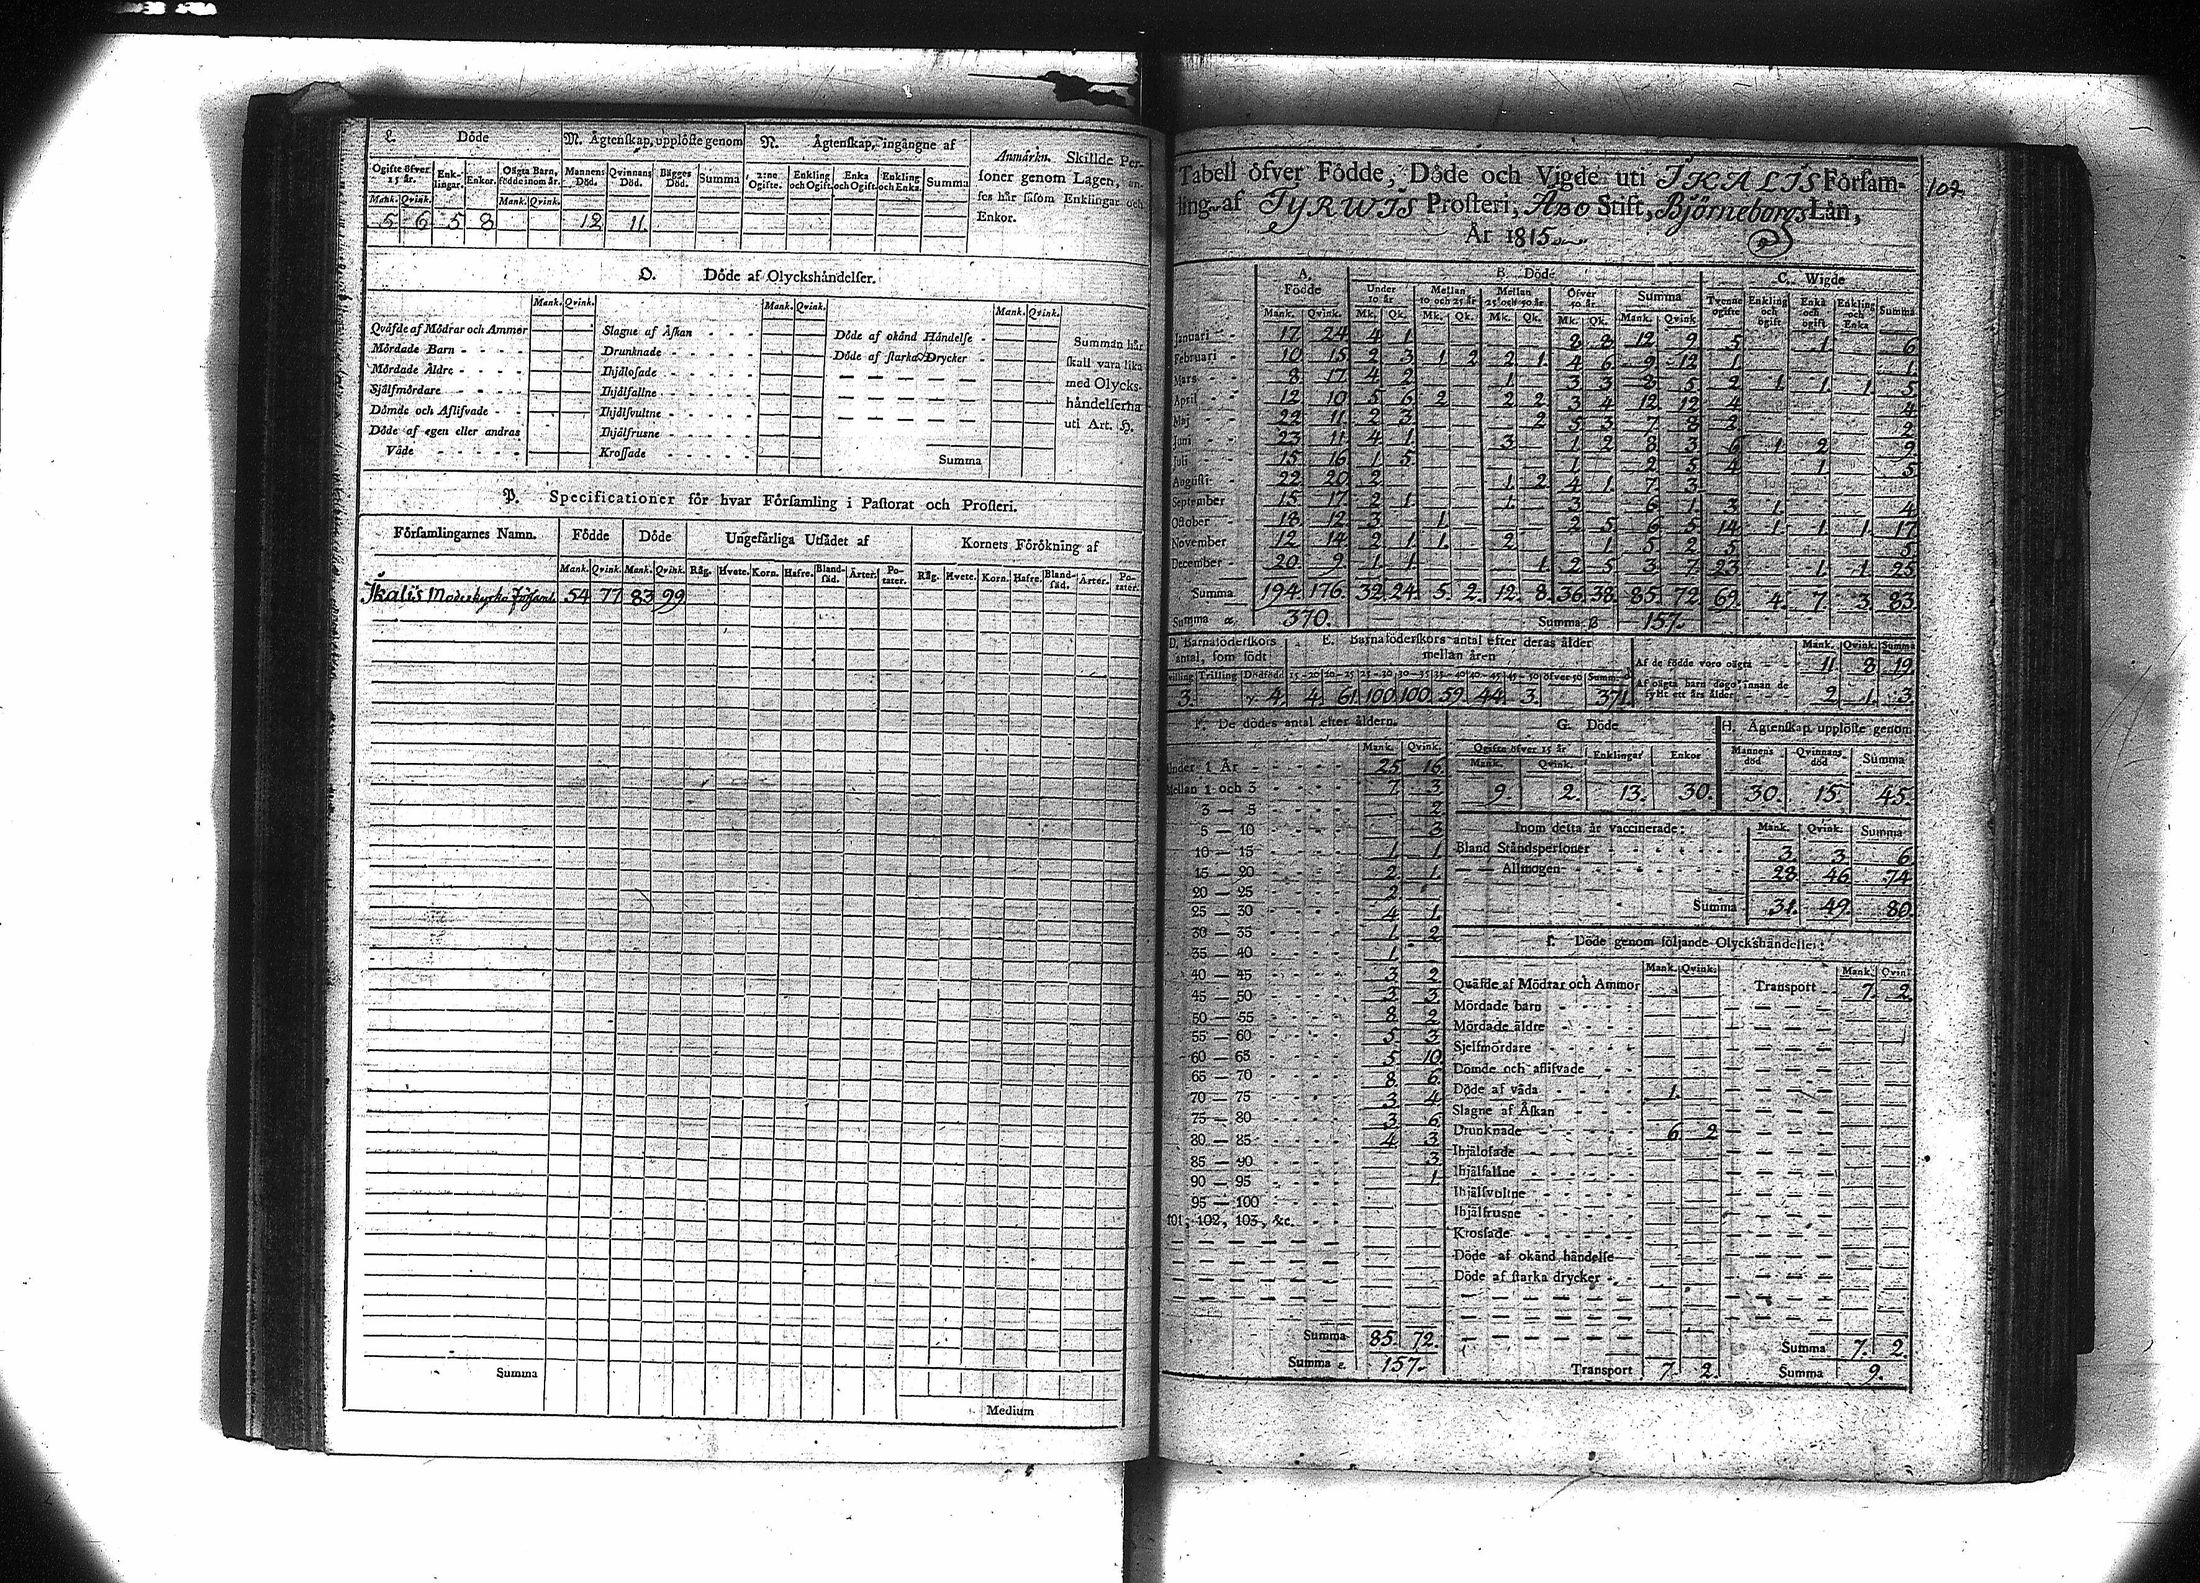 L. Döde
M. Ägtenskap, upplöste genom
N. Ägtenskap, ingångne af
Anmärkn. Skillde Per-
soner genom Lagen, an-
ses här såsom Enklingar och
Enkor.
Ogifte öfver 15 år. Enk-lingar. Enkor. Oägta Barn, födde inom år. Mannens Död. Qvinnans Död. Bägges Död. Summa Ogifte. Enkling och Ogift. Enka och Ogift. Enkling och Enka. Summa
Mank. Qvink. Mank. Qvink.
5 6 5 8 12 11.
O. Döde af Olyckshändelser.
Mank. Qvink. Mank. Qvink. Mank. Qvink.
Qväfde af Mödrar och Ammor
Mördade Barn
Mördade Äldre
Sjelfmördare
Dömde och Aflifvade
Döde af egen eller andras
Våde
Slagne af Åskan
Drunknade
Ihjälosade
Ihjälfallne
Ihjälsvultne
Ihjälfrusne
Krossade
Döde af okänd Händelse
Döde af starka Drycker
Summa
Summan här
skall vara lika
med Olycks-
händelserna
uti Art. H.
P. Specificationer för hvar Församling i Pastorat och Prosteri.
Församlingarnes Namn. Födde Döde Ungefärliga Utsädet af Kornets Förökning af
Mank. Qvink. Mank. Qvink. Råg. Hvete. Korn. Hafre. Bland-säd. Ärter. Po-tater. Råg. Hvete. Korn. Hafre. Bland-säd. Ärter. Po-tater.
Ikalis Moderkyrko Församl. 54 77 83 99
Summa
Medium
102
Tabell öfver Födde, Döde och Vigde uti IKALIS Församling af TYRWIS Prosteri, ÅBO Stift, Björneborgs Län,
År 1815
A. Födde B. Döde C. Wigde
Under 10 år Mellan 10 och 25 år Mellan 25 och 50 år Öfver 50 år Summa Tvenne ogifte Enkling och ogift Enka och ogift Enkling och Enka Summa
Mank. Qvink. Mk. Qk. Mk. Qk. Mk. Qk. Mk. Qk. Mank. Qvink
Januari 17 24 4 1 8 8 12 9 5 1 6
Februari 10 15 2 3 1 2 2 1 4 6 9 12 1 1
Mars 8 17 4 2 1 3 3 8 5 2 1 1 1 5
April 12 10 5 6 2 2 2 3 4 12 12 4 4
Maj 22 11 2 3 2 5 3 7 8 2 2
Juni 23 11 4 1 3 1 2 8 3 6 1 2 9
Juli 15 16 1 5 1 2 5 4 1 5
Augusti 22 20 2 1 2 4 1 7 3
September 15 17 2 1 1 3 6 1 3 1 4
October 18 12 3 1 2 5 6 5 14 1 1 1 17
November 12 14 2 1 1 2 1 5 2 5 5
December 20 9 1 1 1 2 5 3 7 23 1 1 25
Summa 194 176 32 24 5 2 12 8 36 38 85 72 69 4 7 3 83
Summa 370. Summa 157.
D. Barnaföderskors antal, som födt
E. Barnaföderskors antal efter deras ålder mellan åren
Mank. Qvink. Summa
Tvilling Trilling Dödfödd 15-20 20-25 25-30 30-35 35-40 40-45 45-50 öfver 50 Summa
3. 4. 4. 61. 100 100. 59. 44. 3. 371.
Af de födde voro oägta 11 8 19.
Af oägta barn dogo innan de fyllt ett års ålder 2 1. 3
F. De dödes antal efter åldern.
Mank. Qvink.
Under 1 År 25 16
Mellan 1 och 3 7 3
3 — 5 2
5 — 10 3
10 — 15 1 1
15 — 20 2 1
20 — 25 2
25 — 30 4 1
30 — 35 1 2
35 — 40 1
40 — 45 3 2
45 — 50 3 3
50 — 55 8 2
55 — 60 5 3
60 — 65 5 10
65 — 70 8 6
70 — 75 3 4
75 — 80 3 6
80 — 85 4 3
85 — 90 3
90 — 95 1
95 — 100
101, 102, 103, &c.
Summa 85. 72.
Summa 157.
G. Döde
Ogifte öfver 15 år Enklingar Enkor
Mank. Qvink.
9. 2. 13. 30.
H. Ägtenskap, upplöste genom
Mannens död Qvinnans död Summa
30. 15. 45.
Inom detta år vaccinerade: Mank. Qvink. Summa
Bland Ståndspersoner 3 3 6
— — Allmogen 28 46 74
Summa 31. 49. 80.
Döde genom följande Olyckshändelser:
Mank. Qvink. Mank. Qvink
Qväfde af Mödrar och Ammor Transport 7. 2
Mördade barn
Mördade äldre
Sjelfmördare
Dömde och aflifvade
Döde af våda 1.
Slagne af Åskan
Drunknade 6 2
Ihjälosade
Ihjälfallne
Ihjälsvultne
Ihjälfrusne
Krossade
Döde af okänd händelse
Döde af starka drycker
Summa 7. 2.
Transport 7. 2. Summa 9.